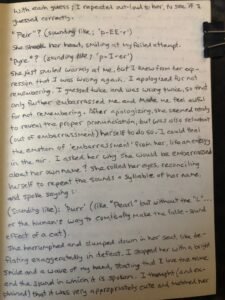 with each guess; I repeated out-loud to her, to see if I
guessed correctly.
"Peir"? (sounding like; 'p-EE-r')
She shook her head, smiling at my failed attempt.
"Pyre"? (sounding like; 'p-I-er')
She just smiled warmly at me, but I knew from her exp-
ression that I was wrong again. I apologized for not
remembering. I guessed twice and was wrong twice, so that
only further embarrassed me and made me feel awful
for not remembering. After apologizing, she seemed ready
to reveal the proper pronunciation, but was also reluctant
(out of embarrassment) herself to do so. I could feel
the emotion of 'embarrassment' from her, like an energy
in the air. I asked her why she would be embarrassed
about her own name? She rolled her eyes, reconciling
herself to repeat the sounds & syllable of her name,
and spoke saying:
(Sounding like); 'Purr' (like "Pearl" but without the "L"...
or the human's way to comically make the little-sound
effect of a cat).
She harrumphed and slumped down in her seat, like de-
flating exaggerately in defeat. I stopped her with a bright
smile and a wave of my hand, stating that I love the name
and the sound in which it is spoken. I thought (and ex-
plained) that it was very appropriately cute and matched her